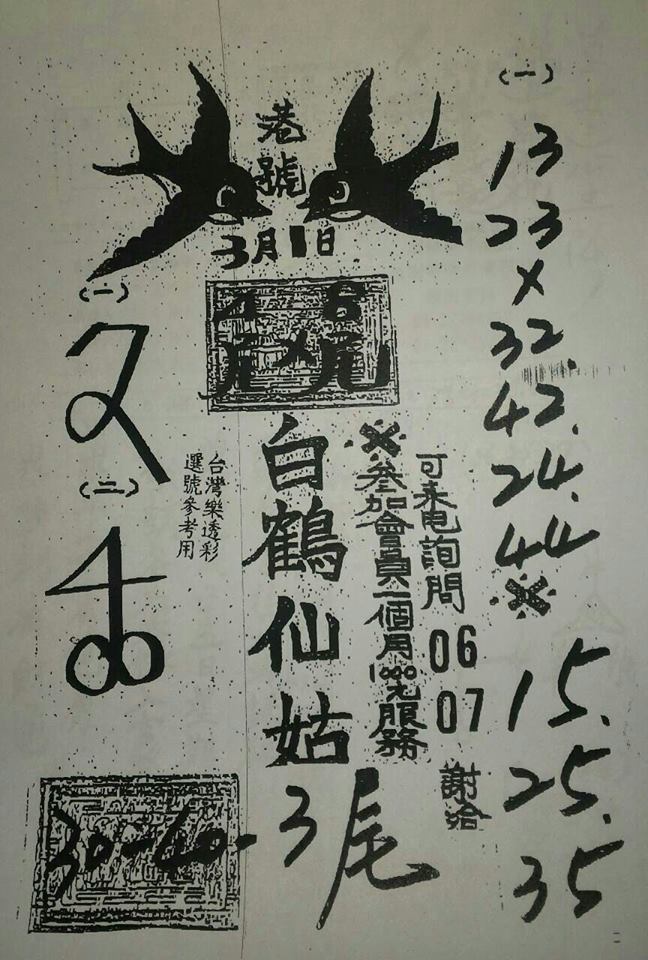 港號
3月1日
(一)
2
(二)
4
00
4尾×8尾
台灣樂透彩
選號參考用
白鶴仙姑
※
可来电詢問
叁加會員一個月1000元服務
06
07
謝洽
(一)
13
23
×
32.
42.
24.
44
※
15.
25.
35
30-40-3尾